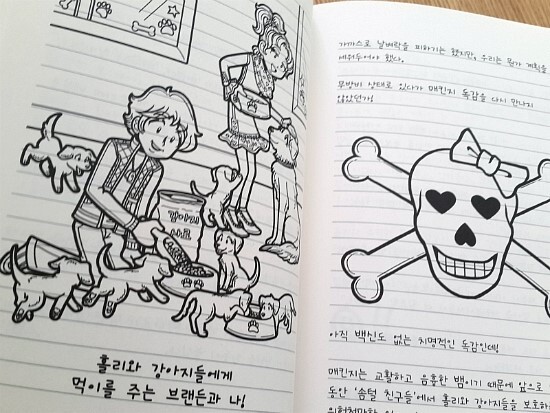 강아지
사료
홀리와 강아지들에게
먹이를 주는 브랜든과 나!
가까스로 날벼락을 피하기는 했지만, 우리는 뭔가 계획을
세워두어야 했다.
무방비 상태로 있다가 매킨지 독감을 다시 만나지
않았던가!
아직 백신도 없는 치명적인 독감인데!
매킨지는 교활하고 음흉한 뱀이기 때문에 앞으로
동안 '솜털 친구들'에서 홀리와 강아지들을 보호하